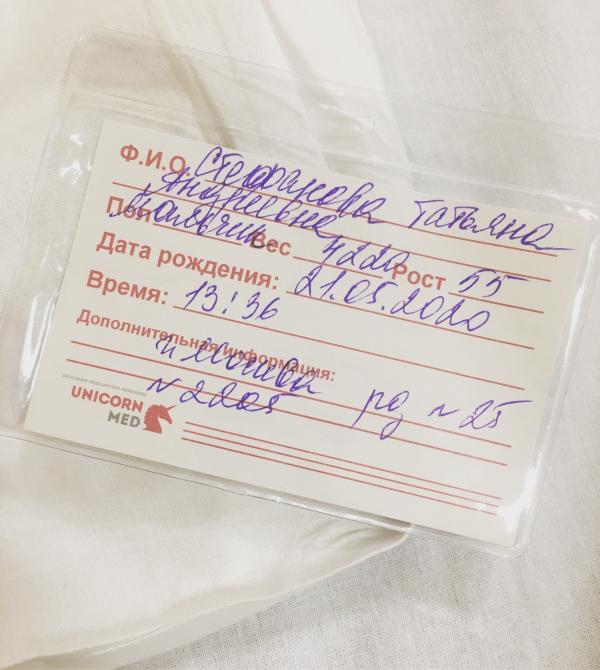 Ф.И.О. Стефанова Татьяна
Андреевна
Пол мальчик Вес 4220 Рост 55
Дата рождения: 21.05.2020
Время: 13:36
Дополнительная информация:
г. Москва рд N 25
N 2205
расходные медицинские материалы
UNICORN
MED